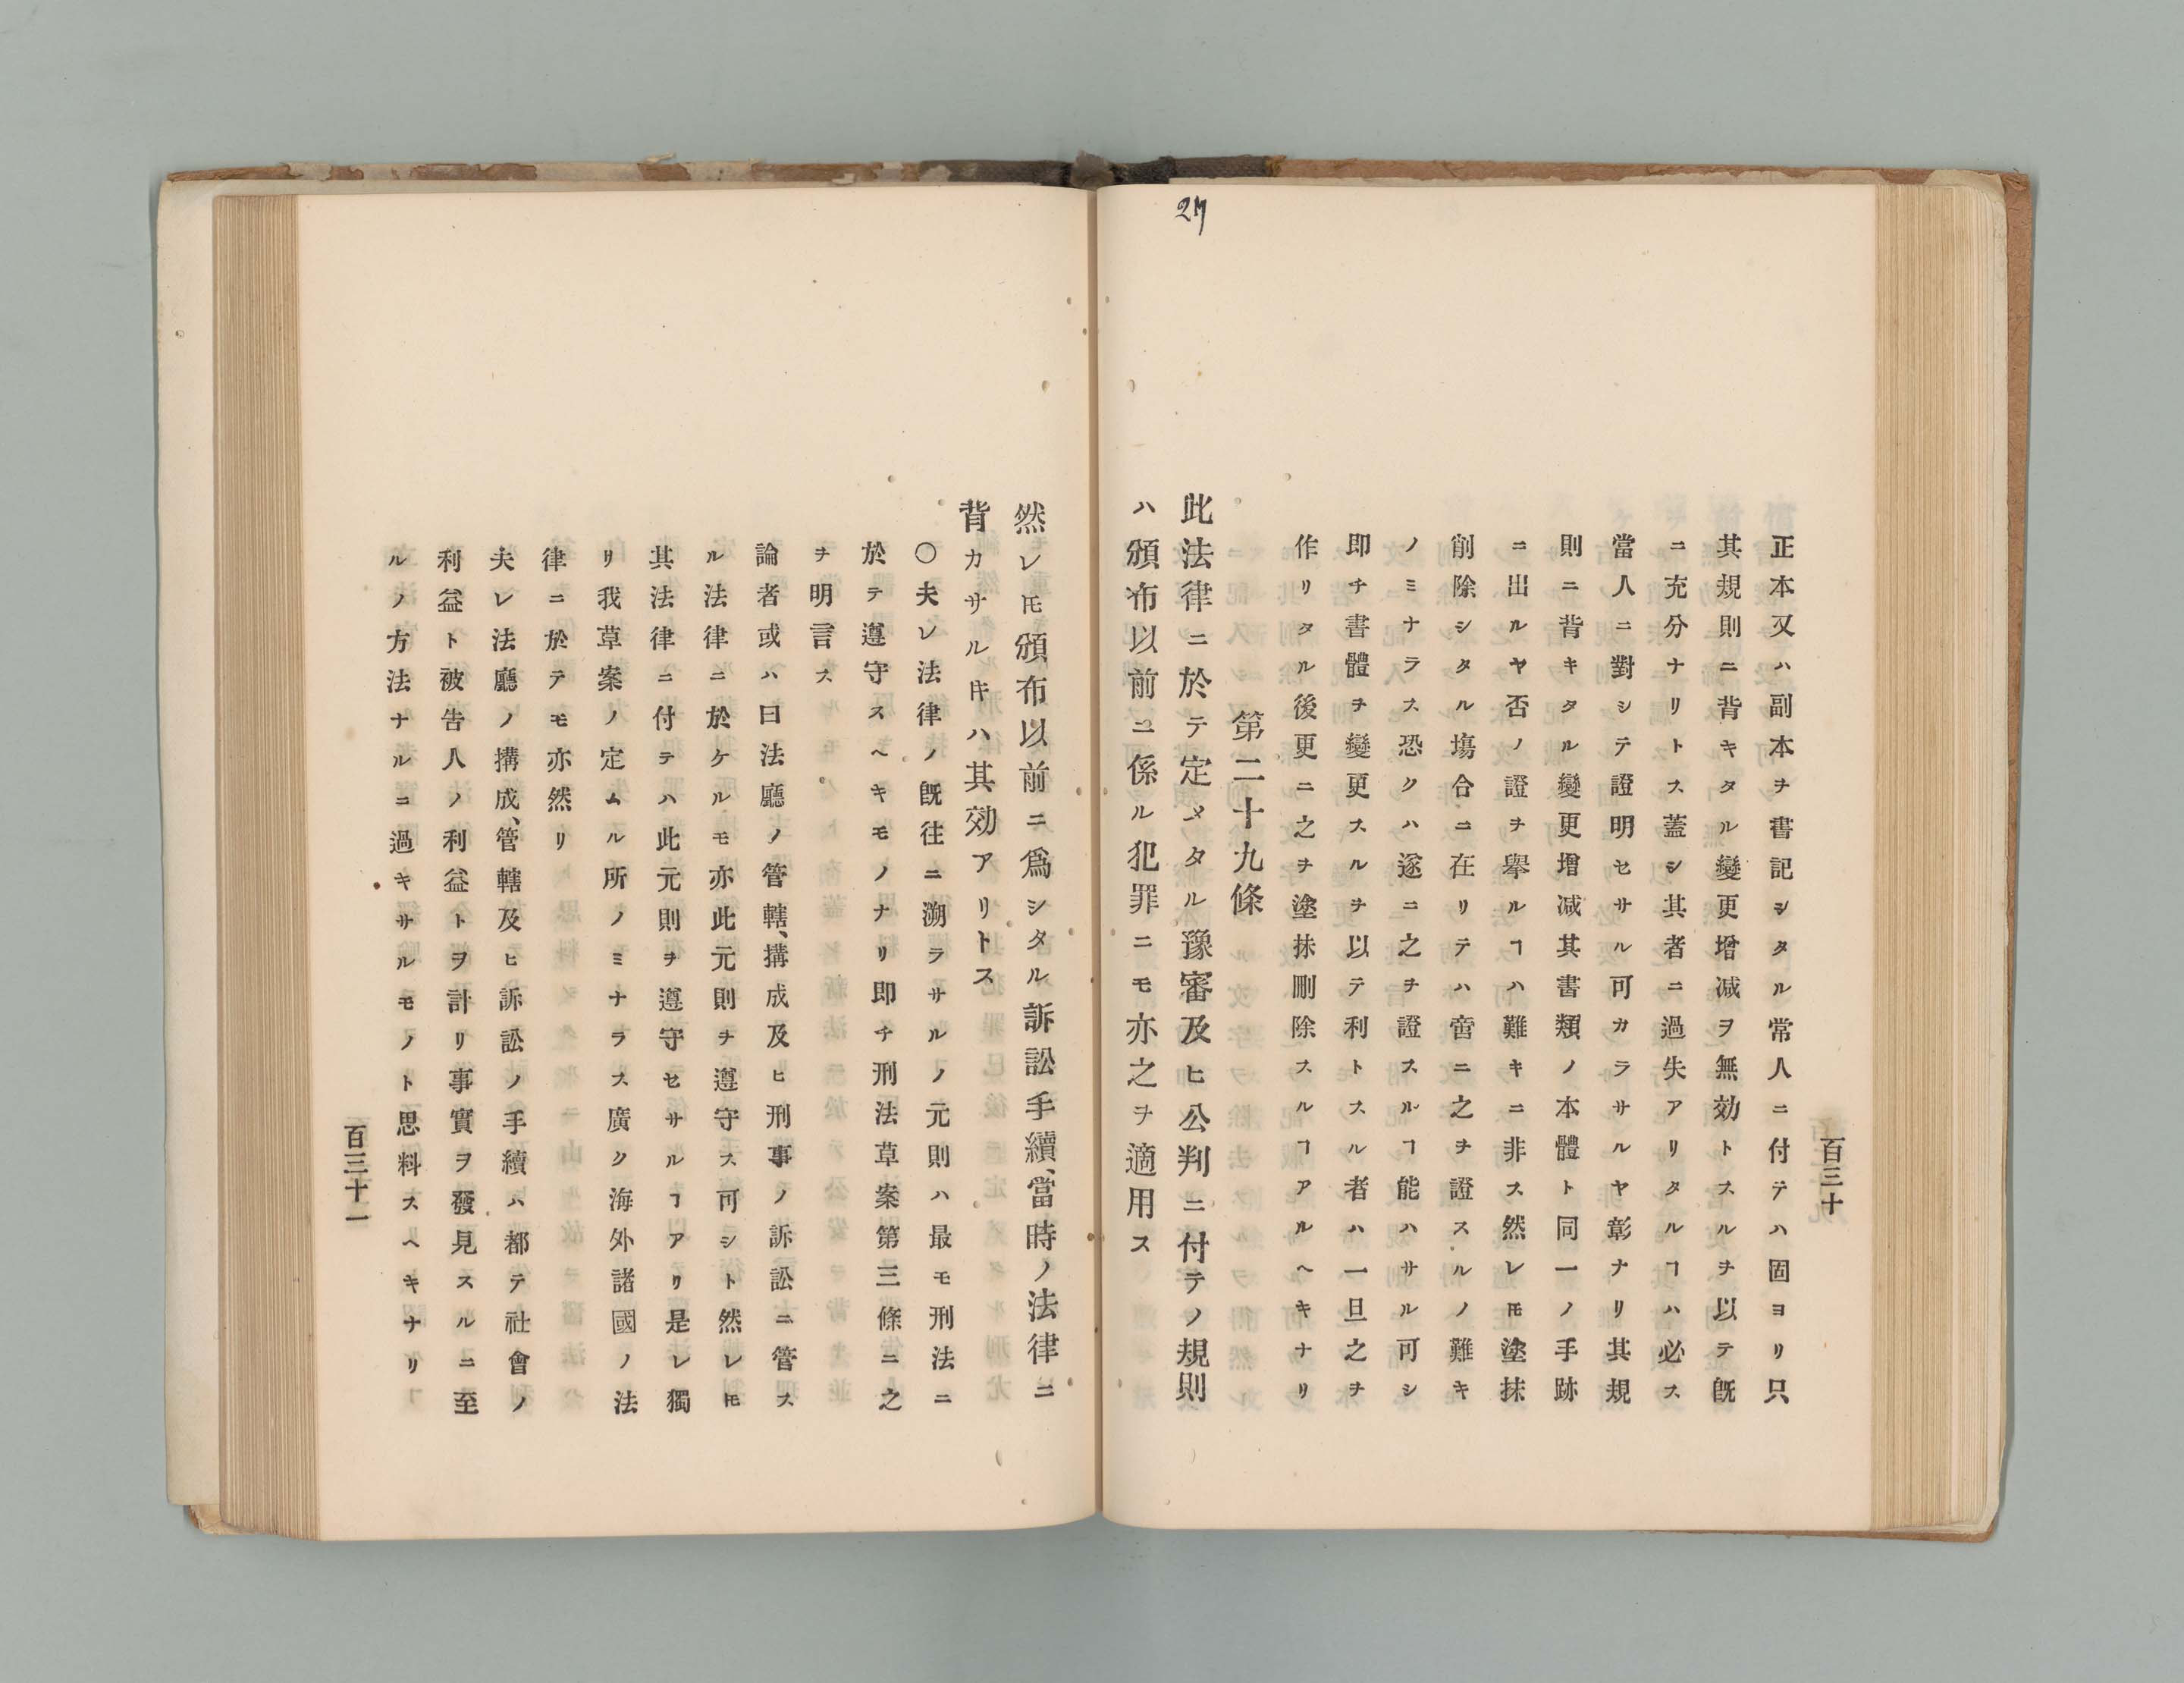 27
百三十
正本又ハ副本ヲ書記シタル常人ニ付テハ固ヨリ只
其規則ニ背キタル變更增減ヲ無効トスルヲ以テ既
ニ充分ナリトス蓋シ其者ニ過失アリタルヿハ必ス
當人ニ對シテ證明セサル可カラサルヤ彰ナリ其規
則ニ背キタル變更增減其書類ノ本體ト同一ノ手跡
ニ出ルヤ否ノ證ヲ擧ルヿハ難キニ非ス然レ𪜈塗抹
削除シタル塲合ニ在リテハ啻ニ之ヲ證スルノ難キ
ノミナラス恐クハ遂ニ之ヲ證スルヿ能ハサル可シ
即チ書體ヲ變更スルヲ以テ利トスル者ハ一旦之ヲ
作リタル後更ニ之ヲ塗抹刪除スルヿアルヘキナリ
第二十九條
此法律ニ於テ定メタル豫審及ヒ公判ニ付テノ規則
ハ頒布以前ニ係ル犯罪ニモ亦之ヲ適用ス
然レ𪜈頒布以前ニ爲シタル訴訟手續、當時ノ法律ニ
背カサルトキハ其効アリトス
〇夫レ法律ノ既往ニ溯ラサルノ元則ハ最モ刑法ニ
於テ遵守スヘキモノナリ即チ刑法草案第三條ニ之
ヲ明言ス
論者或ハ曰法廳ノ管轄、搆成及ヒ刑事ノ訴訟ニ管ス
ル法律ニ於ケルモ亦此元則ヲ遵守ス可シト然レ𪜈
其法律ニ付テハ此元則ヲ遵守セサルヿアリ是レ獨
リ我草案ノ定ムル所ノミナラス廣ク海外諸國ノ法
律ニ於テモ亦然リ
夫レ法廳ノ搆成、管轄及ヒ訴訟ノ手續ハ都テ社會ノ
利益ト被告人ノ利益トヲ計リ事實ヲ發見スルニ至
ルノ方法ナルニ過キサルモノト思料スヘキナリ
百三十一